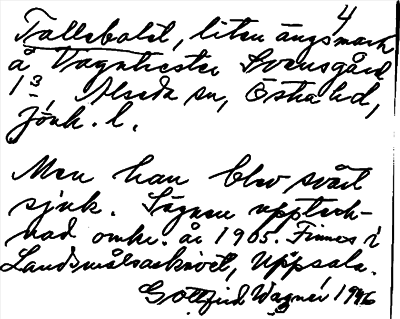 4
Tallebalet, liten ängsmark
å Vagnhester Svensgård
1 3 Alseda sn, Östra hd,
Jönk. l.
Men han blev svårt
sjuk. Sägnen uppteck-
nad omkr. år 1905. Finnes i
Landsmålsarkivet, Uppsala.
Gottfrid Wagnér 1946